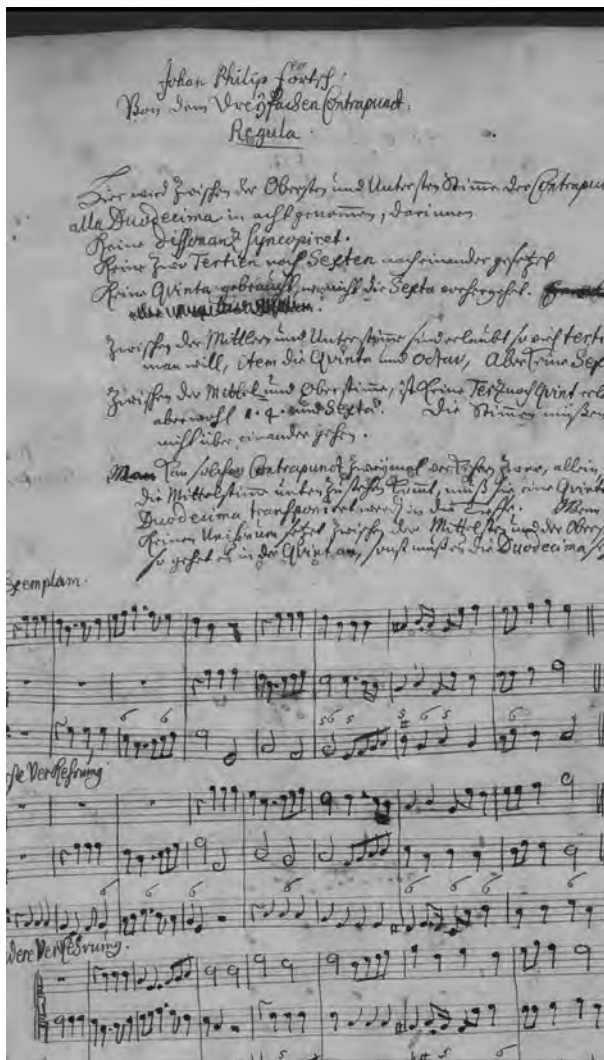 Johan Philip Förtsch.
Von dem Dreyfachen Contrapunct.
Regula.
Hier wird zwischen der Obersten und Untersten Stimme der Contrapun
alla Duodecima in acht genommen, darinnen
Keine Dissonanz Syncopiret.
Keine zwo Tertien noch Sexten nach einander gesetzet
Keine Qvinta gebraucht, wo nicht die Sexta vorhergehet.
Zwischen der Mittlern und Unterstimme sind erlaubt so viel terti
man will, item die Qvinta und octav, Aber keine Sep
Zwischen der Mittel und Oberstimme, ist keine Terz noch Qvint erl
aber wohl 8. 4. und Sexta. Die Stimmen müßen
nicht über einander gehen.
Man kan solchen Contrapunct zweymahl verkehren zwar, allein,
die Mittelstimme unten zu stehen kommt, muß sie eine Qvinte
Duodecima transponiret werd in die Wenn
Keinen Unisonum setzet zwischen der Mittelsten und der Oberst
so gehet es in der Qvint an, sonst muß es die Duodecima s
Exemplum.
6 6 56 5 5 6 5 6
ste Verkehrung
6 6 6 6 6 6 6 6
dere Verkehrung.